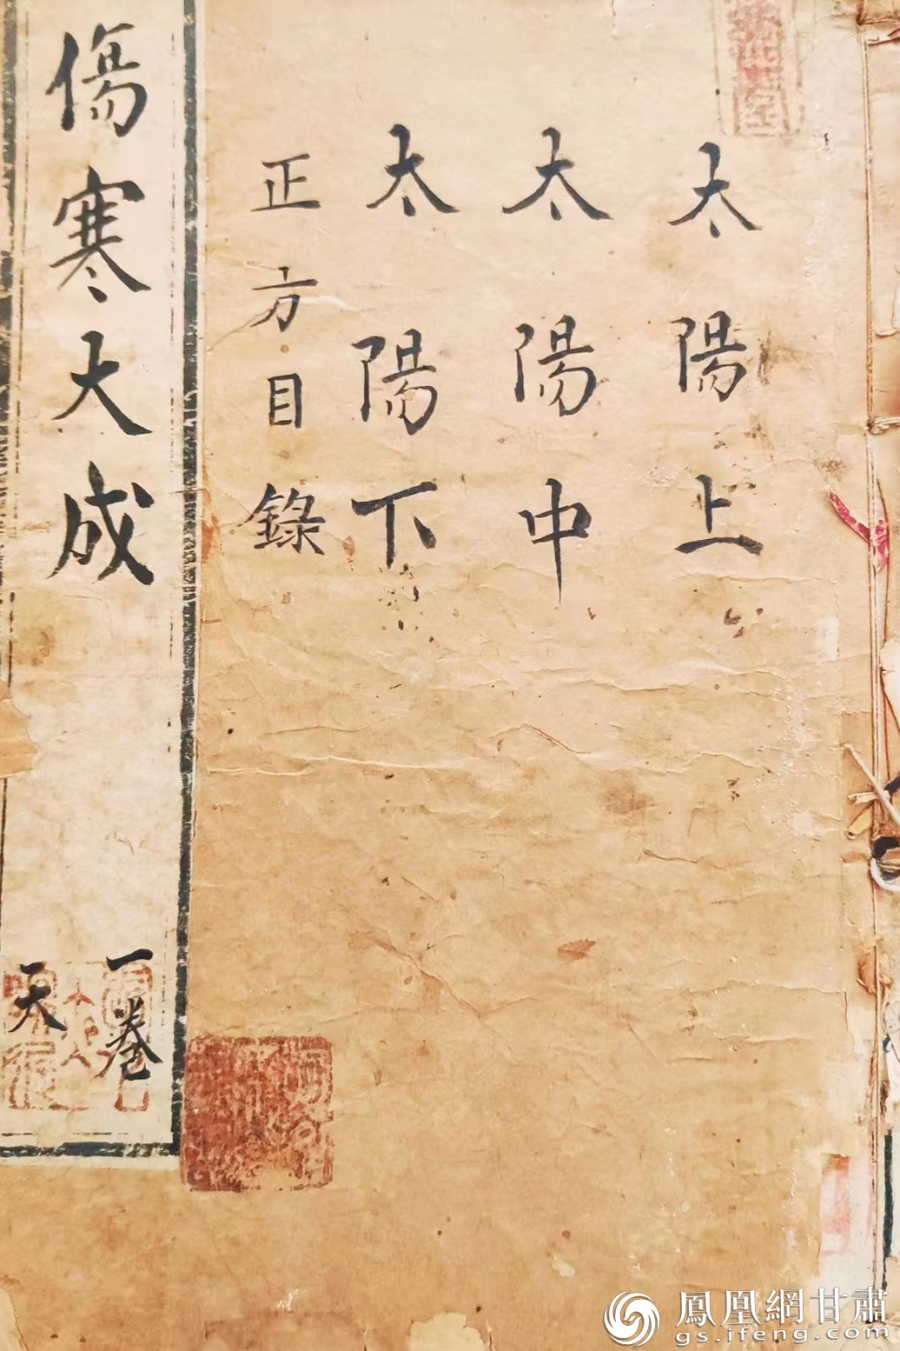 太陽上
太陽中
太陽下
正方目錄
傷寒大成
一卷
天
鳳凰網甘肅
gs.ifeng.com